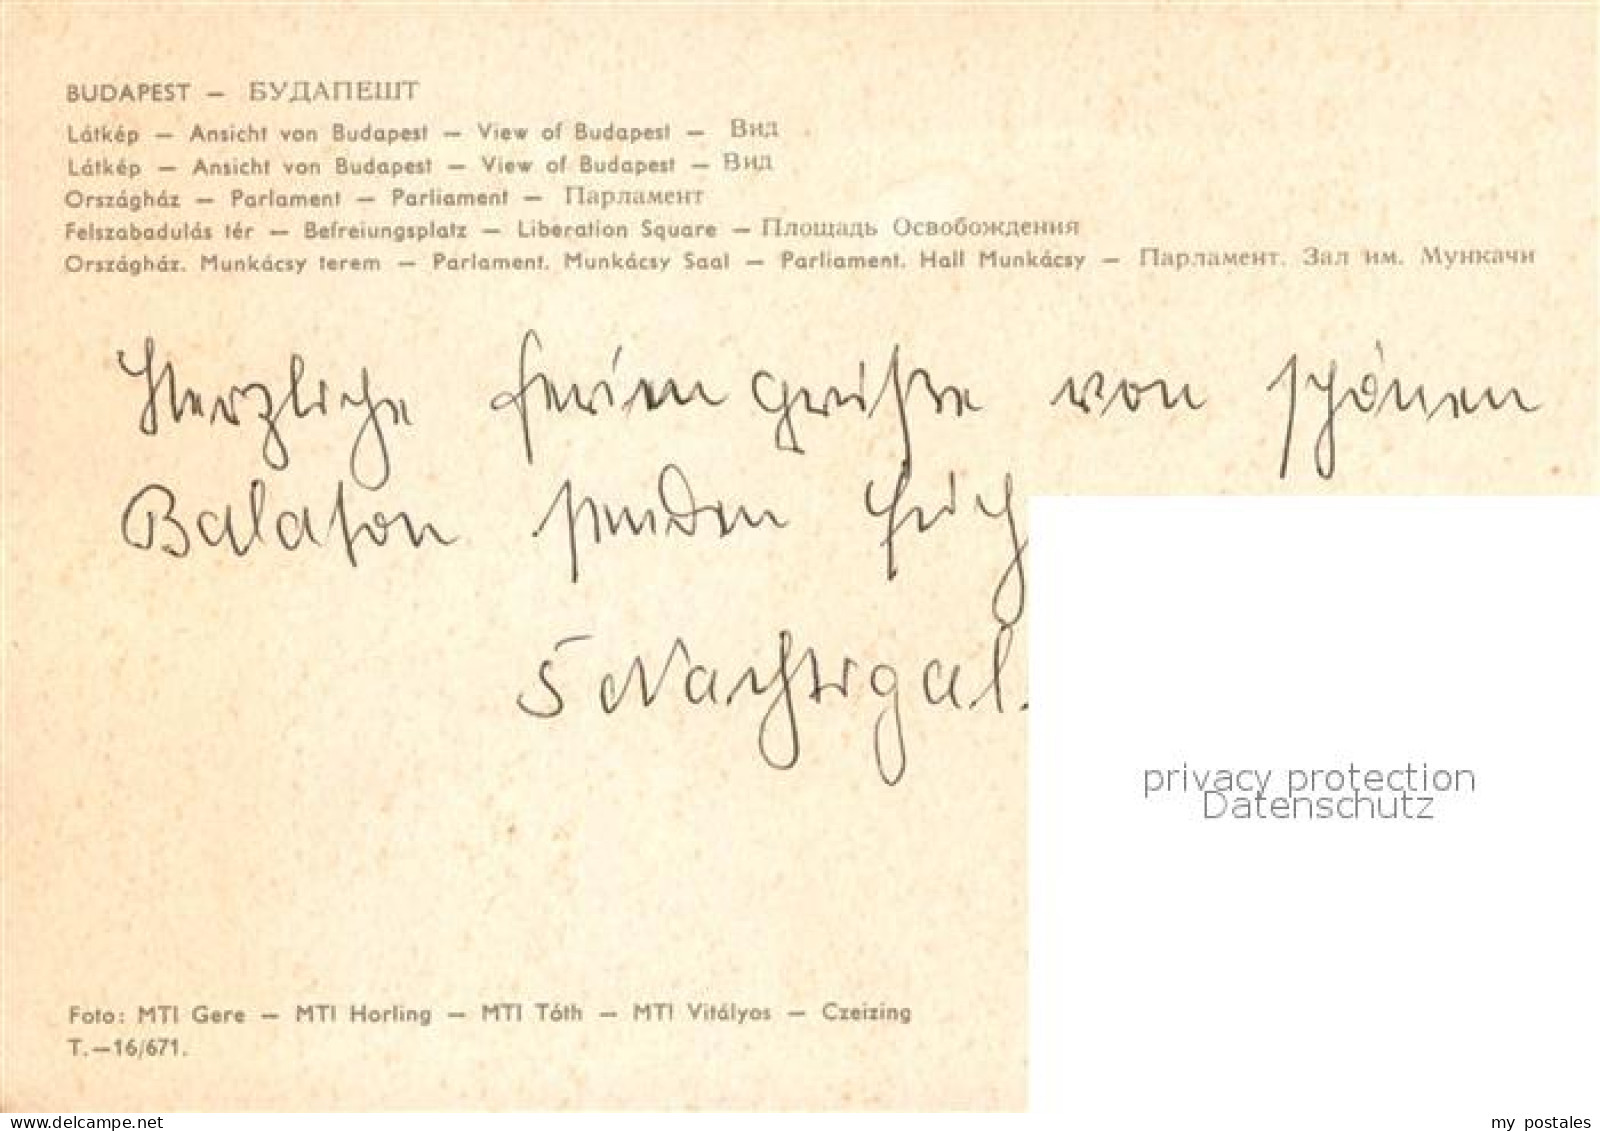 BUDAPEST — БУДАПЕШТ
Látkép — Ansicht von Budapest — View of Budapest — Вид
Látkép — Ansicht von Budapest — View of Budapest — Вид
Országház — Parlament — Parliament — Парламент
Felszabadulás tér — Befreiungsplatz — Liberation Square — Площадь Освобождения
Országház. Munkácsy terem — Parlament. Munkácsy Saal — Parliament. Hall Munkácsy — Парламент. Зал им. Мункачи
Herzliche feriengrüße von schönen
Balaton senden Euch
5 Nachtigal.
privacy protection
Datenschutz
Foto: MTI Gere — MTI Horling — MTI Tóth — MTI Vitályos — Czeizing
T.—16/671.
delcampe.net
my_postales